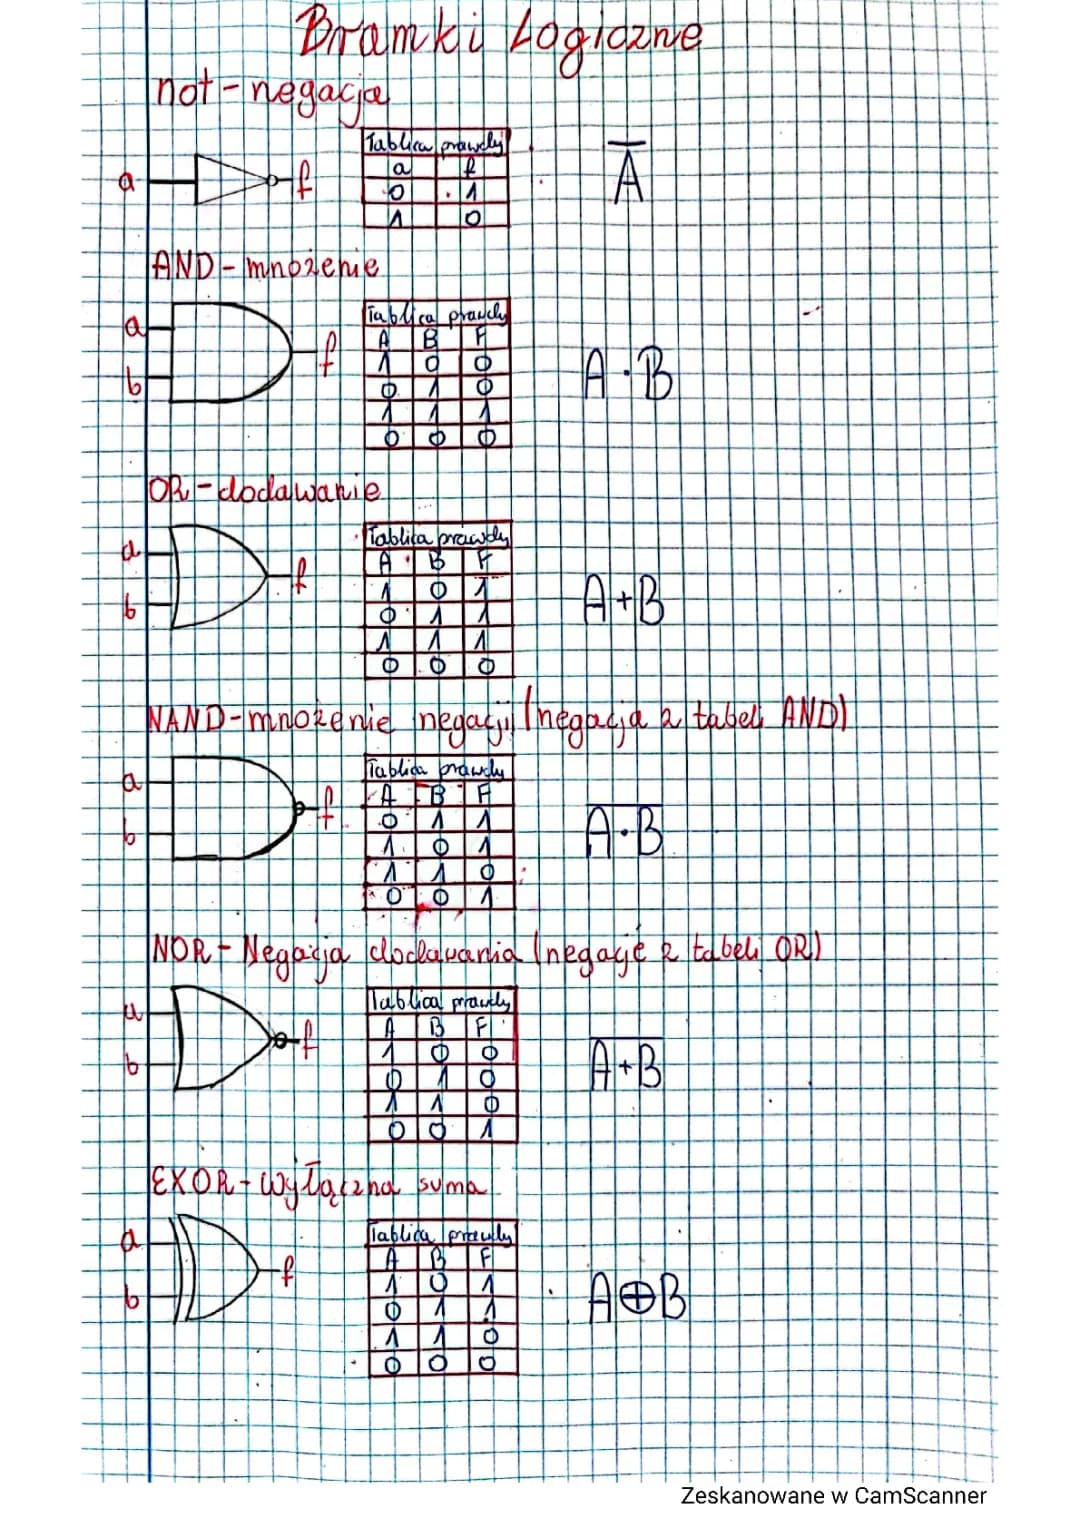 Bramki Logiczne
not - negacja
Tablica prawdy
a f
a f
0 1
1 0
A̅
AND - mnożenie
Tablica prawdy
a
b
f
A B F
1 0 0
0 1 0
1 1 1
0 0 0
A · B
OR - dodawanie
Tablica prawdy
a
b
f
A B F
1 0 1
0 1 1
1 1 1
0 0 0
A + B
NAND - mnożenie negacji (negacja z tabeli AND)
Tablica prawdy
a
b
f
A B F
0 1 1
1 0 1
1 1 0
0 0 1
A̅ ·̅ B̅
NOR - Negacja dodavania (negacje z tabeli OR)
Tablica prawdy
a
b
f
A B F
1 0 0
0 1 0
1 1 0
0 0 1
A̅ +̅ B̅
EXOR - wyłączna suma
Tablica prawdy
a
b
f
A B F
1 0 1
0 1 1
1 1 0
0 0 0
A ⊕ B
Zeskanowane w CamScanner